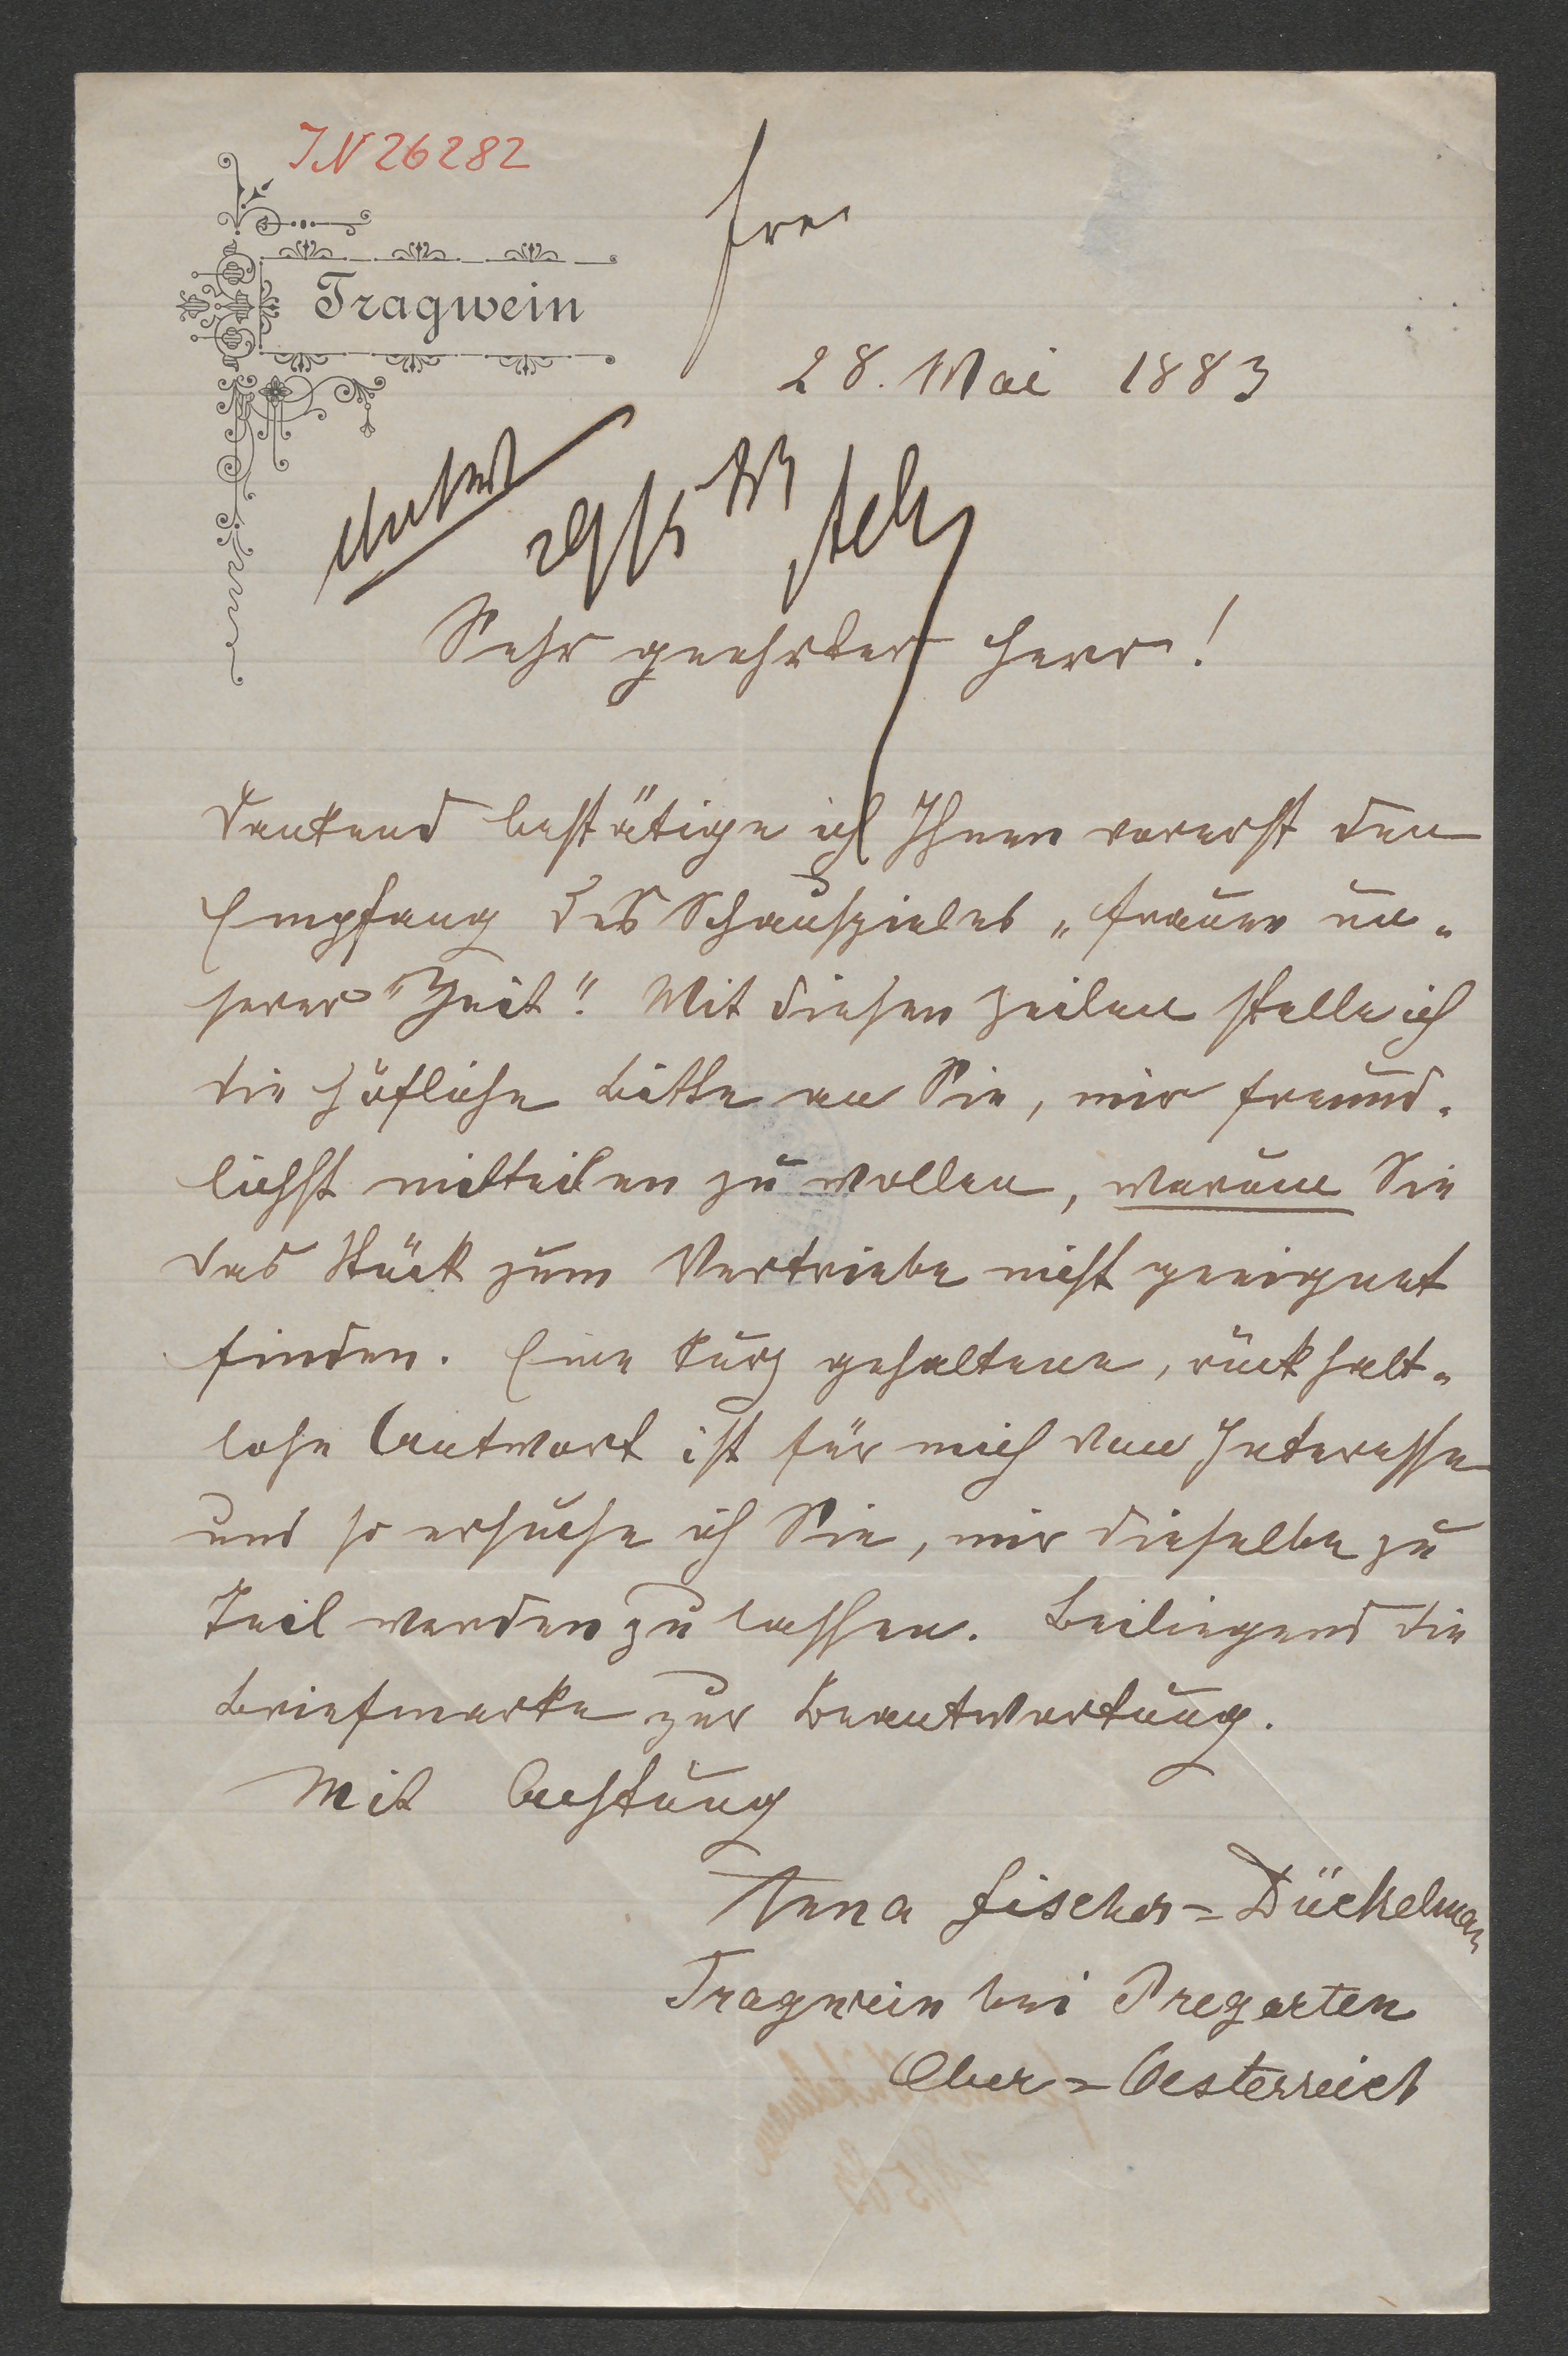 IN 26282
frei
Tragwein
28. Mai 1883
29/5 83
Sehr geehrter Herr!
Dankend bestätige ich Ihnen vorerst den
Empfang des Schauspieles „Frauen un-
serer "Zeit". Mit diesen Zeilen stelle ich
die höfliche Bitte an Sie, mir freund-
lichst mitteilen zu wollen, warum Sie
das Stück zum Vertriebe nicht geeignet
finden. Eine kurz gehaltene, rückhalt-
lose Antwort ist für mich von Interesse
und so ersuche ich Sie, mir dieselbe zu
Teil werden zu lassen. Beiliegend die
Briefmarke zur Beantwortung.
Mit Achtung
Anna Fischer=Dückelman
Tragwein bei Pregarten
Ober=Oesterreich